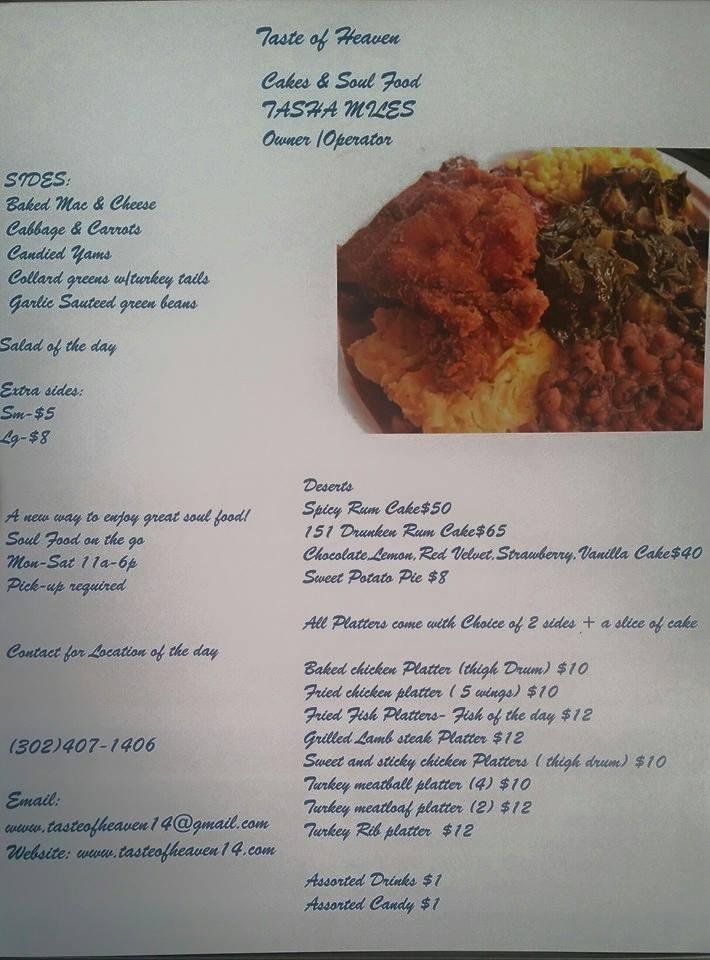 Taste of Heaven
Cakes & Soul Food
TASHA MILES
Owner /Operator
SIDES:
Baked Mac & Cheese
Cabbage & Carrots
Candied Yams
Collard greens w/turkey tails
Garlic Sauteed green beans
Salad of the day
Extra sides:
Sm-$5
Lg-$8
A new way to enjoy great soul food!
Soul Food on the go
Mon-Sat 11a-6p
Pick-up required
Contact for Location of the day
(302)407-1406
Email:
www.tasteofheaven14@gmail.com
Website: www.tasteofheaven14.com
Deserts
Spicy Rum Cake$50
151 Drunken Rum Cake$65
Chocolate,Lemon,Red Velvet,Strawberry,Vanilla Cake$40
Sweet Potato Pie $8
All Platters come with Choice of 2 sides + a slice of cake
Baked chicken Platter (thigh Drum) $10
Fried chicken platter ( 5 wings) $10
Fried Fish Platters- Fish of the day $12
Grilled Lamb steak Platter $12
Sweet and sticky chicken Platters ( thigh drum) $10
Turkey meatball platter (4) $10
Turkey meatloaf platter (2) $12
Turkey Rib platter $12
Assorted Drinks $1
Assorted Candy $1